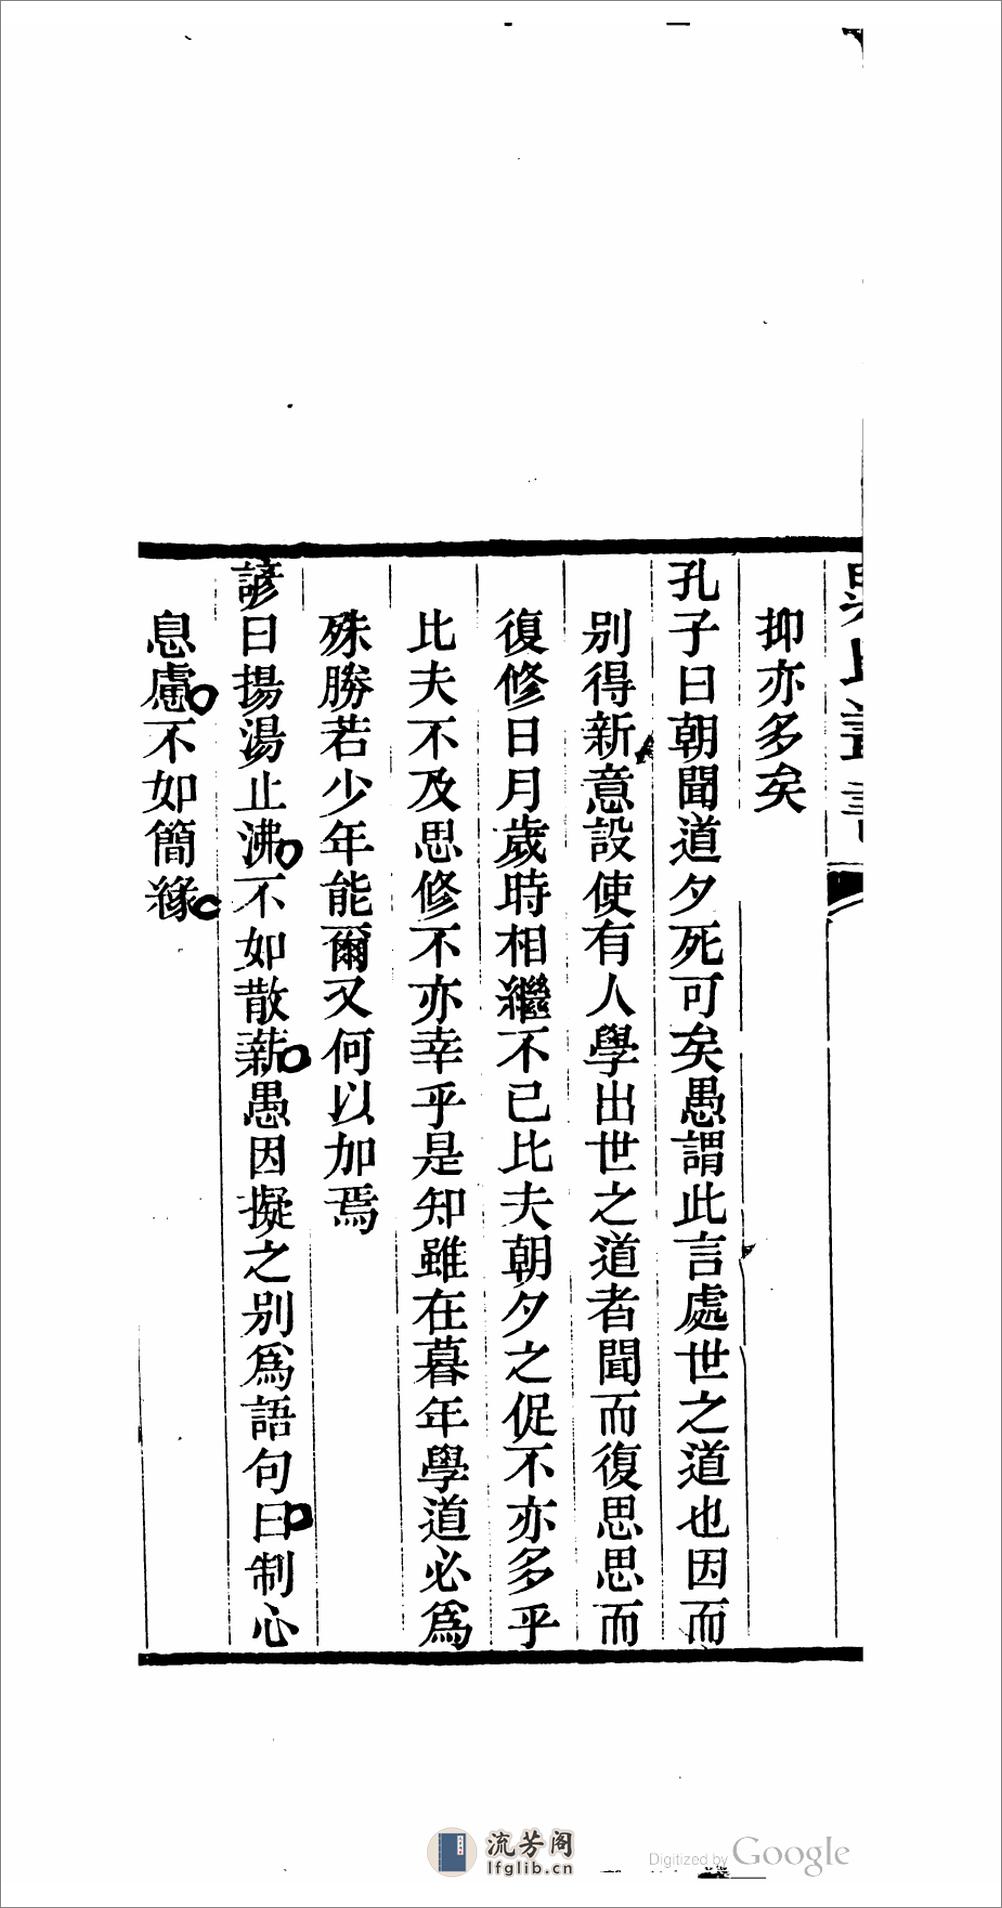 抑亦多矣
孔子曰朝聞道夕死可矣愚謂此言處世之道也因而
別得新意設使有人學出世之道者聞而復思思而
復修日月歲時相繼不已比夫朝夕之促不亦多乎
比夫不及思修不亦幸乎是知雖在暮年學道必爲
殊勝若少年能爾又何以加焉
諺曰揚湯止沸不如散薪愚因擬之别爲語句曰制心
息慮不如簡緣
流芳阁
lfglib.cn
Digitized by Google